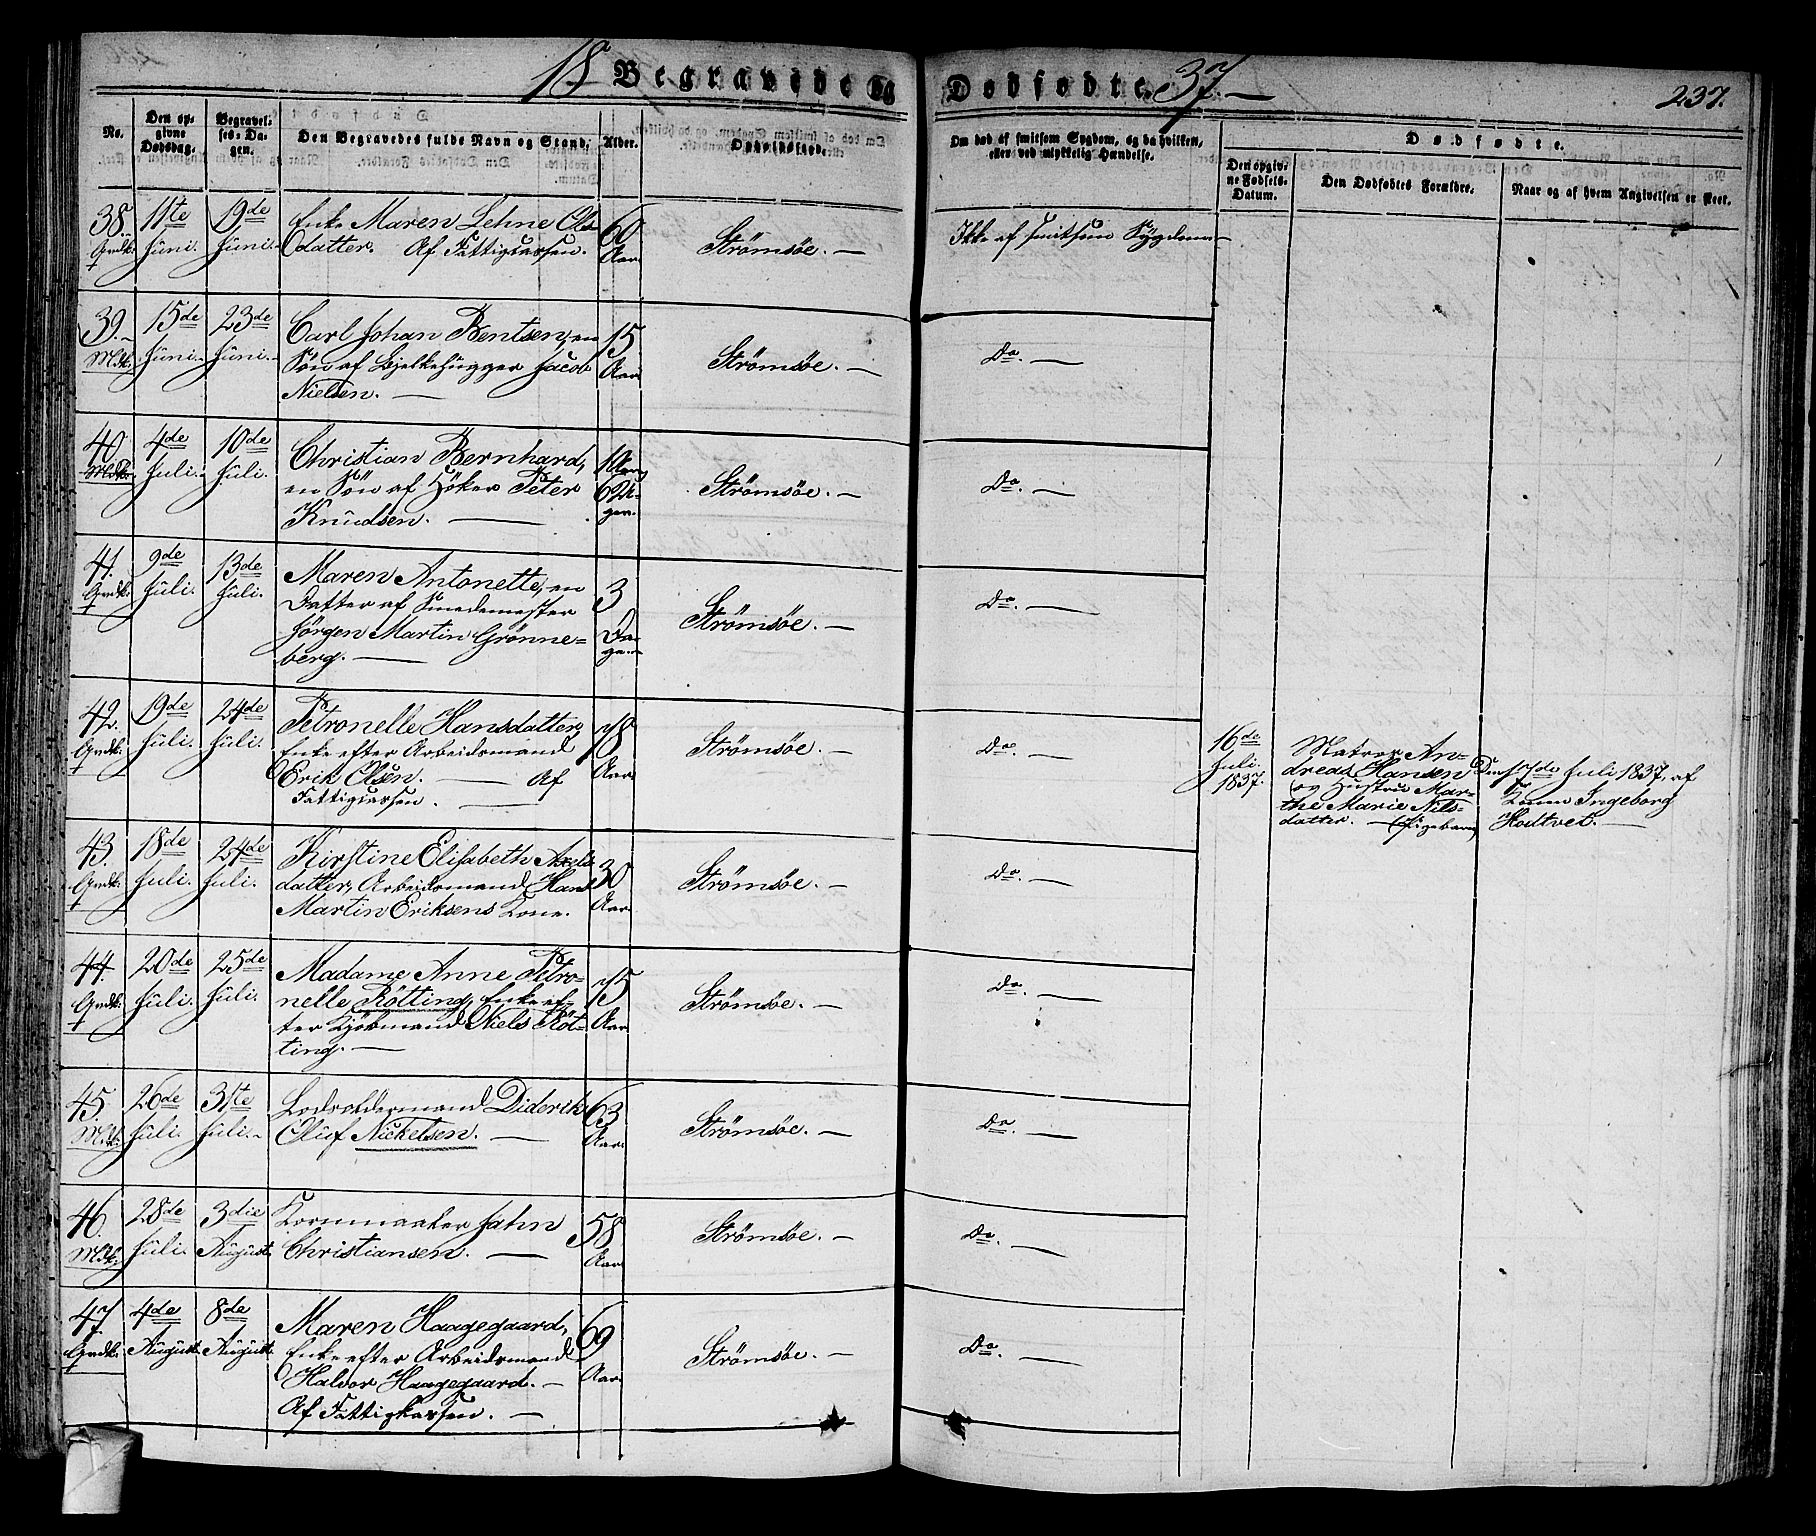 18 Begravede og Dødfødte. 37. 237.
No.
Den op-
givne
Dødsdag.
Begravel-
ses-Da-
gen.
Den Begravedes fulde Navn og Stand.
Alder.
Opholdssted.
Om død af smitsom Sygdom, og da hvilken,
eller ved ulykkelig Hændelse.
Dødfødte.
Den opgiv-
ne Fødsels-
Datum.
Den Dødfødtes Forældre.
Naar og af hvem Angivelsen er skeet.
38. 11te Juni. 19de Juni.
Enke Maren Lehne Ols-
datter. Af Fattigcassen.
60 Aar.
Strömsöe.
Ikke af smitsom Sygdom
39. Mdk. 15de Juni. 23de Juni.
Carl Johan Bentsen, en
Sön af Bjelkehugger Jacob
Nielsen.
15 Aar.
Strömsöe.
Do.
40 Mdk. 4de Juli. 10de Juli.
Christian Bernhard,
en Sön af Höker Peter
Knudsen.
6 Uger.
Strömsöe.
Do.
41. Qvdk. 9de Juli. 13de Juli.
Maren Antonette, en
Datter af Smedemester
Jörgen Martin Grönne-
berg.
3 Dage.
Strömsöe.
Do.
42. Qvdk. 19de Juli. 24de Juli.
Petronelle Hansdatter,
Enke efter Arbeidsmand
Erik Olsen. Af
Fattigcassen.
78 Aar.
Strömsöe.
Do.
16de
Juli.
1837.
Matros An-
dreas Hansen
og Hustru Mar-
the Marie Nils-
datter. (Pigebarn)
Den 17de Juli 1837, af
Konen Ingeborg
Hodtvet.
43. Qvdk. 18de Juli. 24de Juli.
Kirstine Elisabeth Axels-
datter, Arbeidsmand Hans
Martin Eriksens Kone.
30 Aar.
Strömsöe.
Do.
44. Qvdk. 20de Juli. 25de Juli.
Madame Anne Petro-
nelle Rötting, Enke ef-
ter Kjöbmand Niels Röt-
ting.
75 Aar.
Strömsöe.
Do.
45. Mdk. 26de Juli. 31te Juli.
Lodsoldermand Diderik
Oluf Nickelsen.
63 Aar.
Strömsöe.
Do.
46. Mdk. 28de Juli. 3die August.
Kornmaaler Jahn
Christiansen.
58 Aar.
Strömsöe.
Do.
47. Qvdk. 4de August. 8de August.
Maren Haagegaard,
Enke efter Arbeidsmand
Halvor Haagegaard.
Af Fattigkassen.
69 Aar.
Strömsöe.
Do.